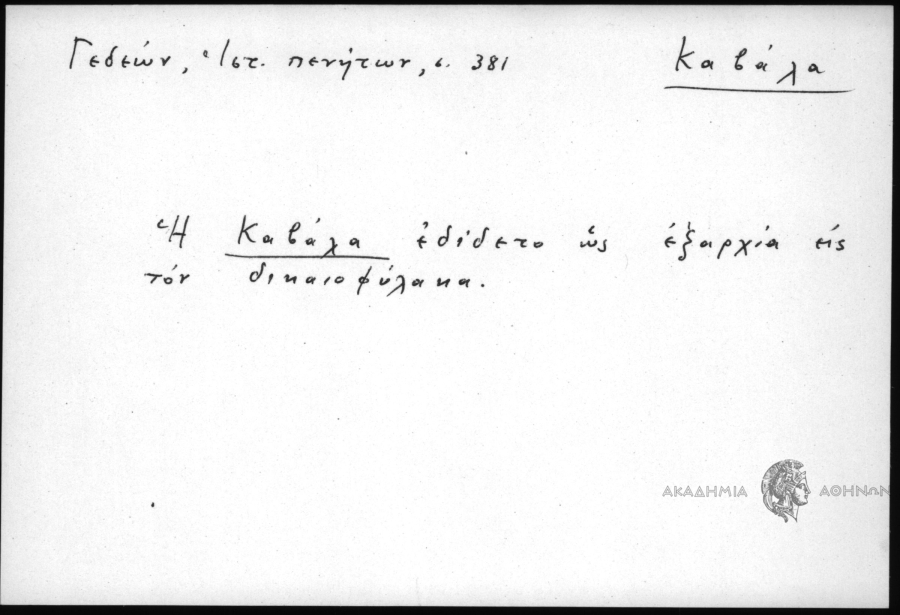 Γεδεών, Ἱστ. πενήτων, σ. 381
Καβάλα
Ἡ Καβάλα ἐδίδετο ὡς ἐξαρχία εἰς
τόν δικαιοφύλακα.
ΑΚΑΔΗΜΙΑ ΑΘΗΝΩΝ